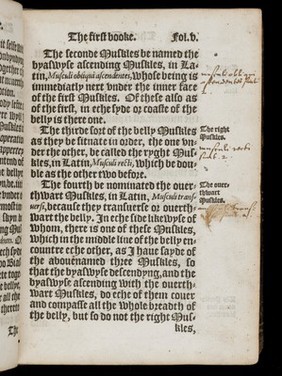 The first booke. Fol. v.
The seconde Muskles be named the
byaswyse ascending Muskles, in La-
tin, Musculi obliqui ascendentes, whose being is
immediatly next vnder the inner face
of the first Muskles. Of these also as
of the first, in eche syde or coaste of the
belly is there one.
The thirde sort of the belly Muskles
as they be situate in order, the one vn-
der the other, be called the ryght Mus-
kles, in Latin, Musculi recti, which be dou-
ble as the other two before.
The right
Muskles.
The fourth be nominated the ouer-
thwart Muskles, in Latin, Musculi trans-
uersi, because they trauerse or ouerth-
wart the belly. In eche side lykewyse of
whom, there is one of these Muskles,
which in the middle line of the belly en-
countre eche other, as I haue sayde of
the abouenamed three Muskles, so
that the byaswyse descendyng, and the
byaswyse ascending with the ouerth-
wart Muskles, do eche of them couer
and compasse all the whole breadth of
the belly, but so do not the right Mus-
kles,
The ouer-
thwart
Muskles.